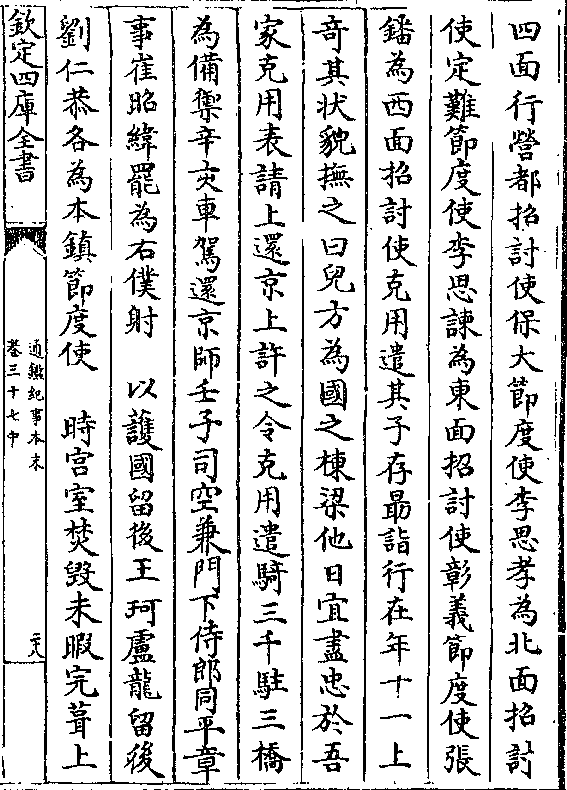 四面行營都招討使保大節度使李思孝為北面招討
使定難節度使李思諫為東面招討使彰義節度使張
鐇為西面招討使克用遣其子存朂詣行在年十一上
竒其狀貌撫之曰兒方為國之棟梁他日宜盡忠於吾
家克用表請上還京上許之令克用遣騎三千駐三橋
為備禦辛亥車駕還京師壬子司空兼門下侍郎同平章
事崔昭緯罷為右僕射　以護國留後王珂盧龍留後
劉仁恭各為本鎮節度使　時宫室焚毁未暇完葺上
欽定四庫全書
通鑑紀事本末
卷三十七中
二十八